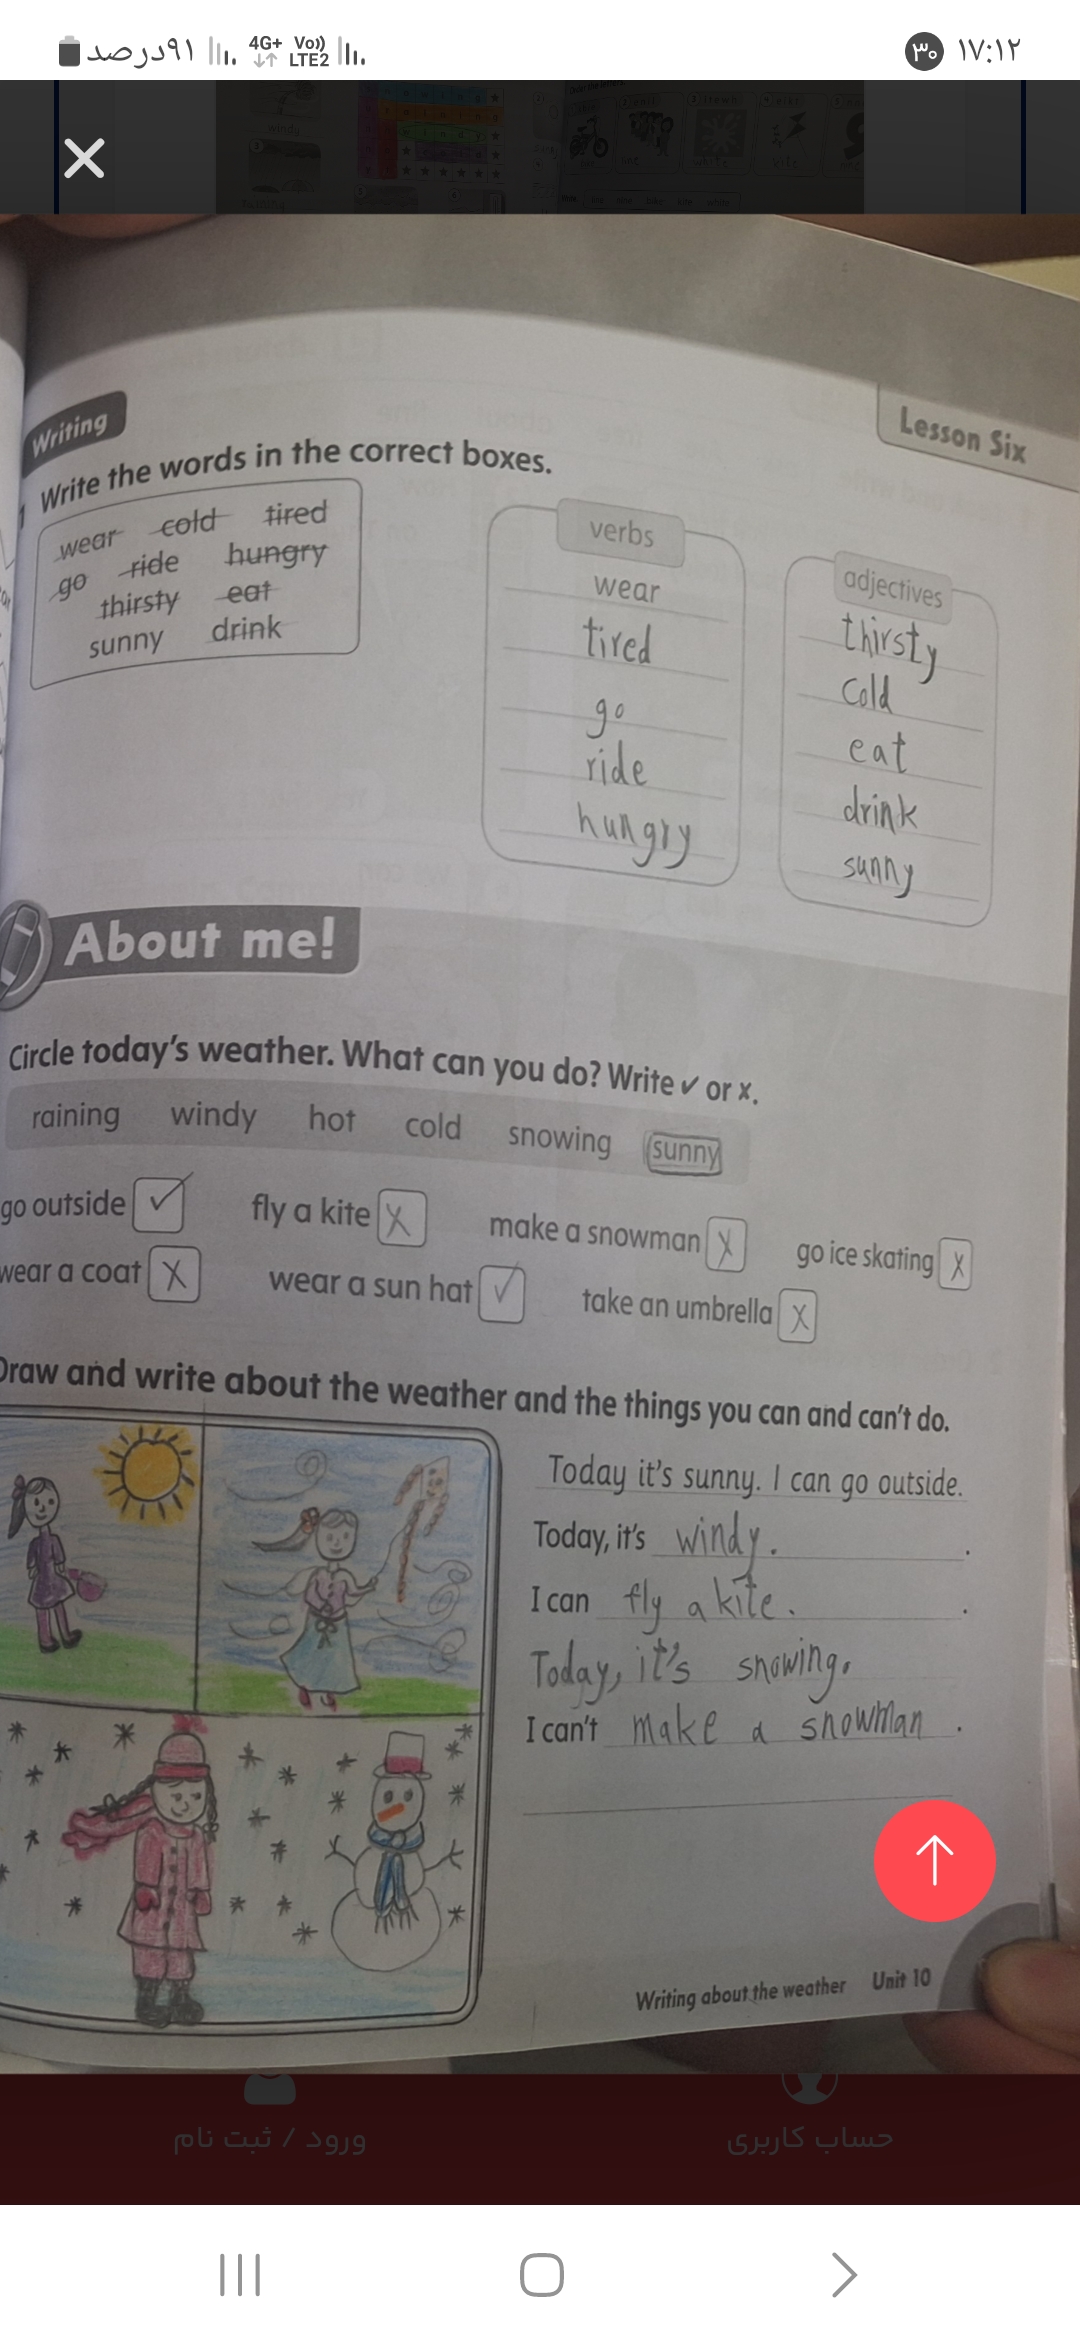 ۹۱درصد 4G+ Vo)) LTE2 ۳۰ ۱۷:۱۲
windy
Writing
Lesson Six
Write the words in the correct boxes.
wear cold tired
go ride hungry
thirsty eat
sunny drink
verbs
wear
tired
go
ride
hungry
adjectives
thirsty
cold
eat
drink
sunny
About me!
Circle today's weather. What can you do? Write ✔ or ✗.
raining windy hot cold snowing sunny
go outside ✓ fly a kite X make a snowman X go ice skating X
wear a coat X wear a sun hat ✓ take an umbrella X
Draw and write about the weather and the things you can and can't do.
Today it's sunny. I can go outside.
Today, it's windy. .
I can fly a kite. .
Today, it's snowing.
I can't make a snowman .
Writing about the weather Unit 10
ورود / ثبت نام
حساب کاربری